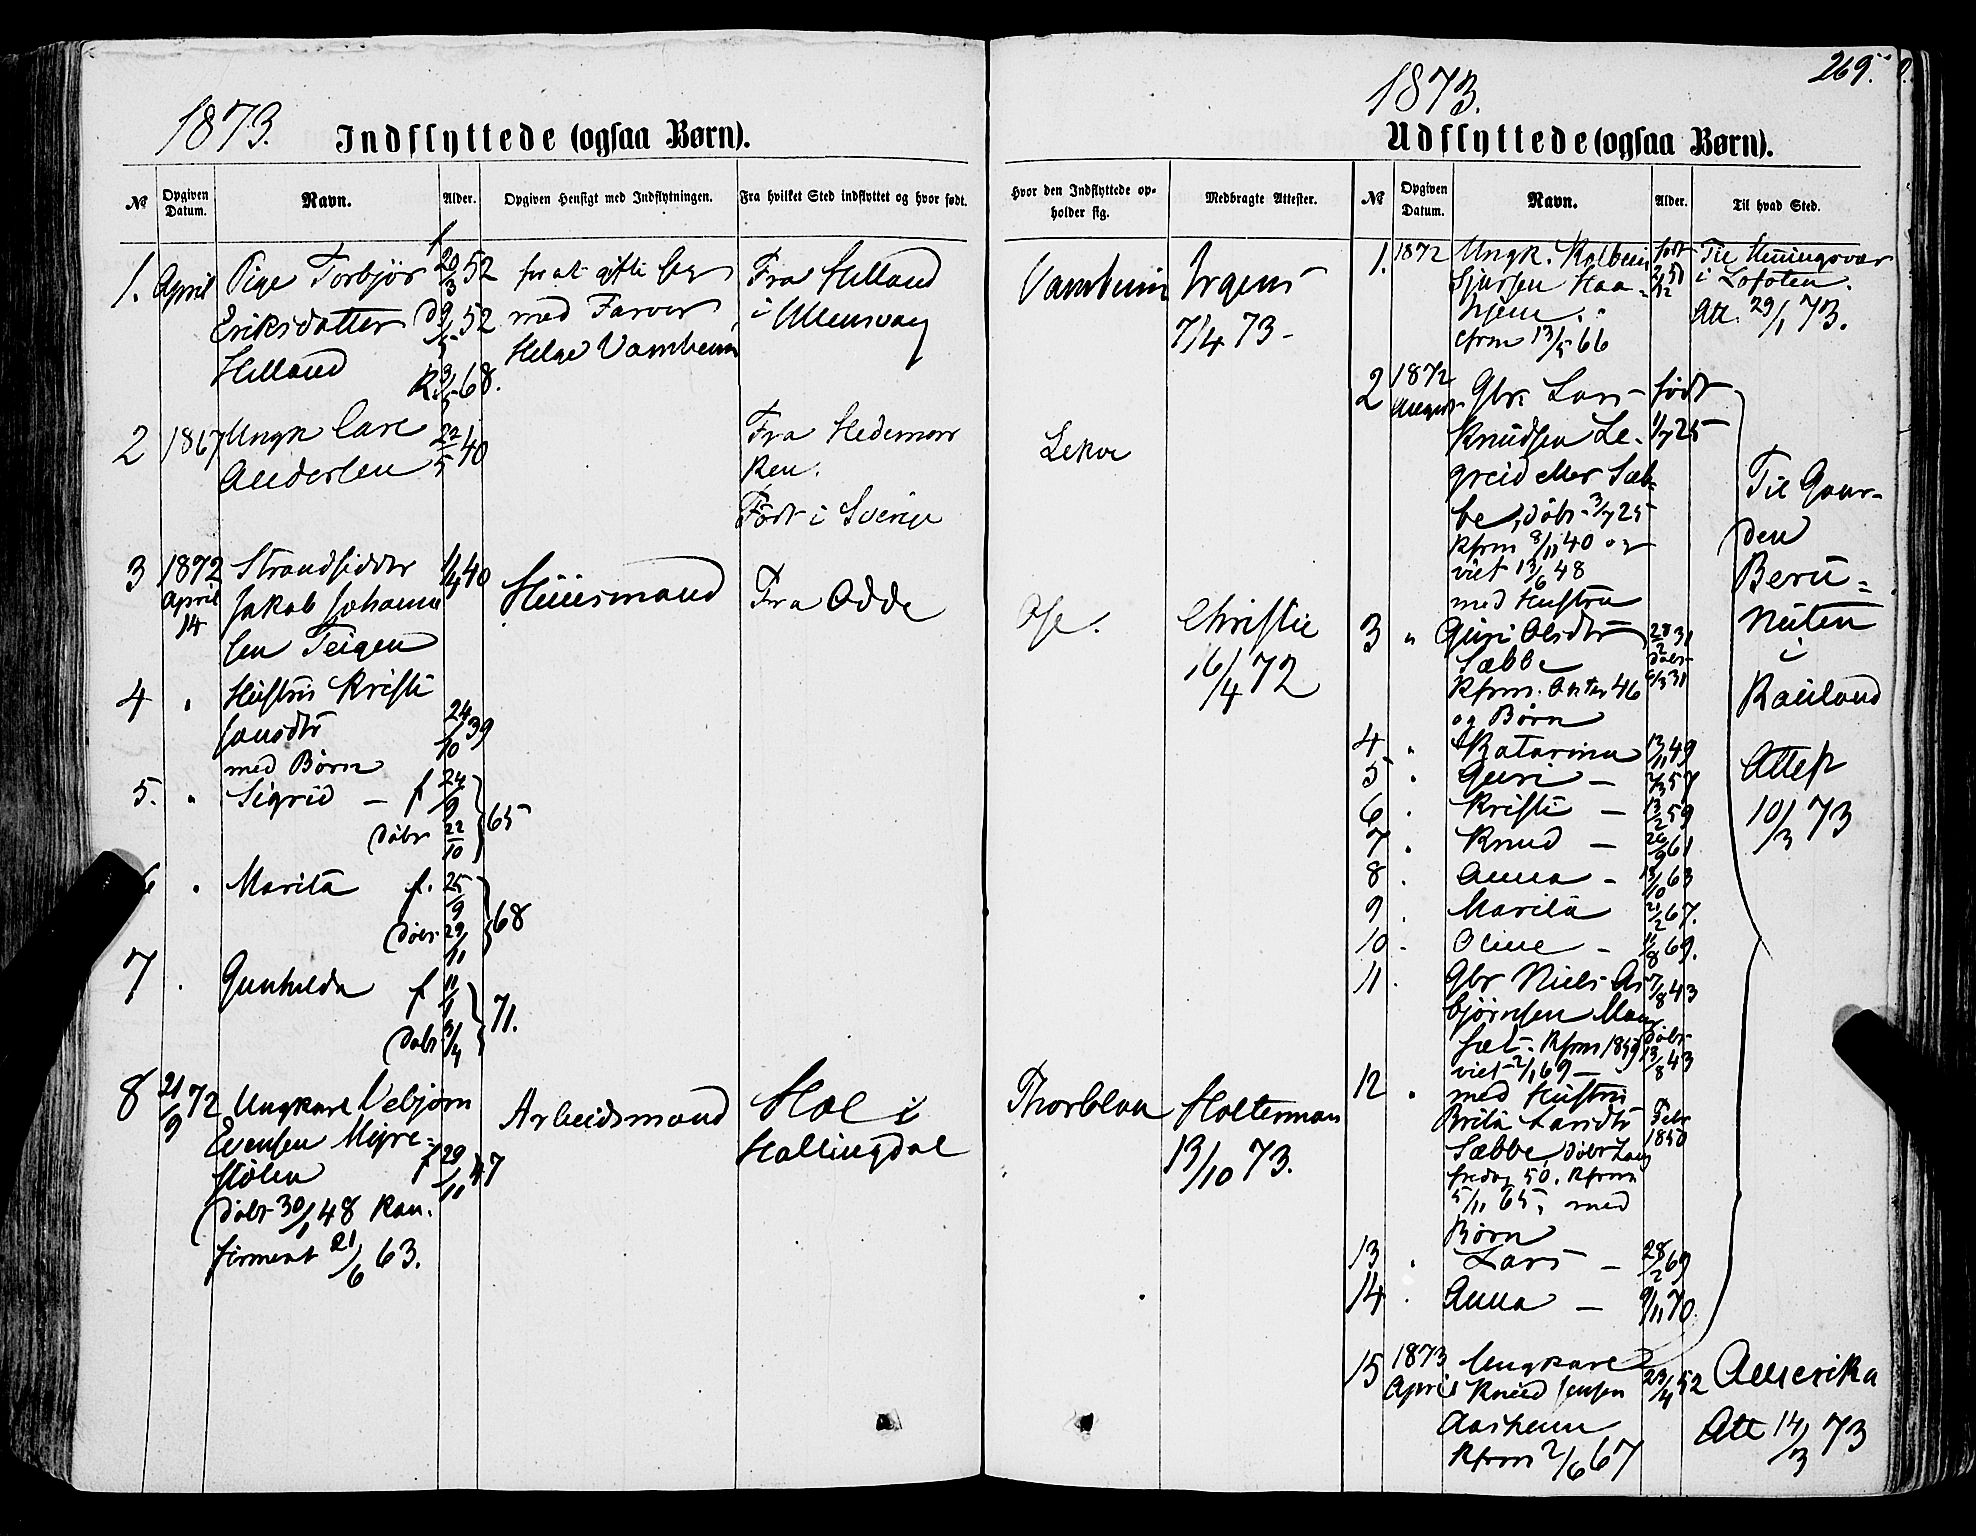 1873.
Indflyttede (ogsaa Børn).
№ Opgiven Datum. Navn. Alder. Opgiven Hensigt med Indflytningen. Fra hvilket Sted indflyttet og hvor født.
Hvor den Indflyttede opholder sig. Medbragte Attester.
1. April Pige Torbjør f 20/3 52 for at gifte sig Fra Helland Vambheim Irgens
Eriksdatter d 9/5 52 med Farver i Ullensvang 7/4 73 -
Helland K 3/5 68. Helge Vambheim
2 1867 Ungk Carl 22/5 40 Fra Hedemar Lekve
Andersen ken.
Født i Sverige
3 1872 Strandsidder 1/4 40 Huusmand Fra Odde Ose. Christie
April 14 Jakob Johanne 16/4 72
sen Teigen
4 " Hustru Kristi
Jonsdtr 24/10 39
med Børn
5. " Sigrid — f 24/9 65
døbt 22/10
6 " Marita f. 25/9 68
døbt 29/11
7 " Gunhilda f 11/1 71.
døbt 3/4
8 21/9 72 Ungkarl Vebjørn Arbeidsmand Hol i Thorblaa Holterman
Evensen Myre= Hallingdal 13/10 73.
stølen f 29/11 47
døbt 30/1 48 Kon.
firmeret 21/6 63.
1873.
269.
Udflyttede (ogsaa Børn).
№ Opgiven Datum. Navn. Alder. Til hvad Sted.
1. 1872 Ungk. Kolbein født Til Henningsvær
Sjursen Haa- i Lofoten.
hjem Att. 29/1 73.
cfrm 13/5 66
2 1872 August Gbr. Lars — født
Knudsen Le- 1/7 25
greid eller Sæb-
be, døbt 3/7 25
Kfrm 8/11 40 og
viet 13/6 48
med Hustru
Til Gaar-
den
Beru=
nuten
i
Rauland
Attest
10/3 73
3 " Guri Olsdtr 28/2 31
Sæbbe døbt 6/3 31
Kfrm. 46
og Børn
4 " Katarina 13/11 49
5 " Guri — 2/3 57
6 " Kristi — 13/2 59
7 " Knud — 26/9 61
8 " Anna — 13/10 63
9 " Marita 21/2 67.
10 - Oline — 11/8 69.
11 " Gbr Niels As 7/8 43
bjørnsen Maur døbt
sæt. Kfrm 1859 13/8 43
viet 2/1 69 —
12 " med Hustru
Brita Larsdtr Febr
Sæbbe, døbt Lang 1850
fredag 50. Kfrm
5/11 65, med
Børn
13 " Lars — 28/2 69
14 " Anna — 9/11 70
15 1873 Ungkarl Amerika
April Knud Jensen 23/4 52
Aasheim Att 14/3 73
Kfrm 2/6 67